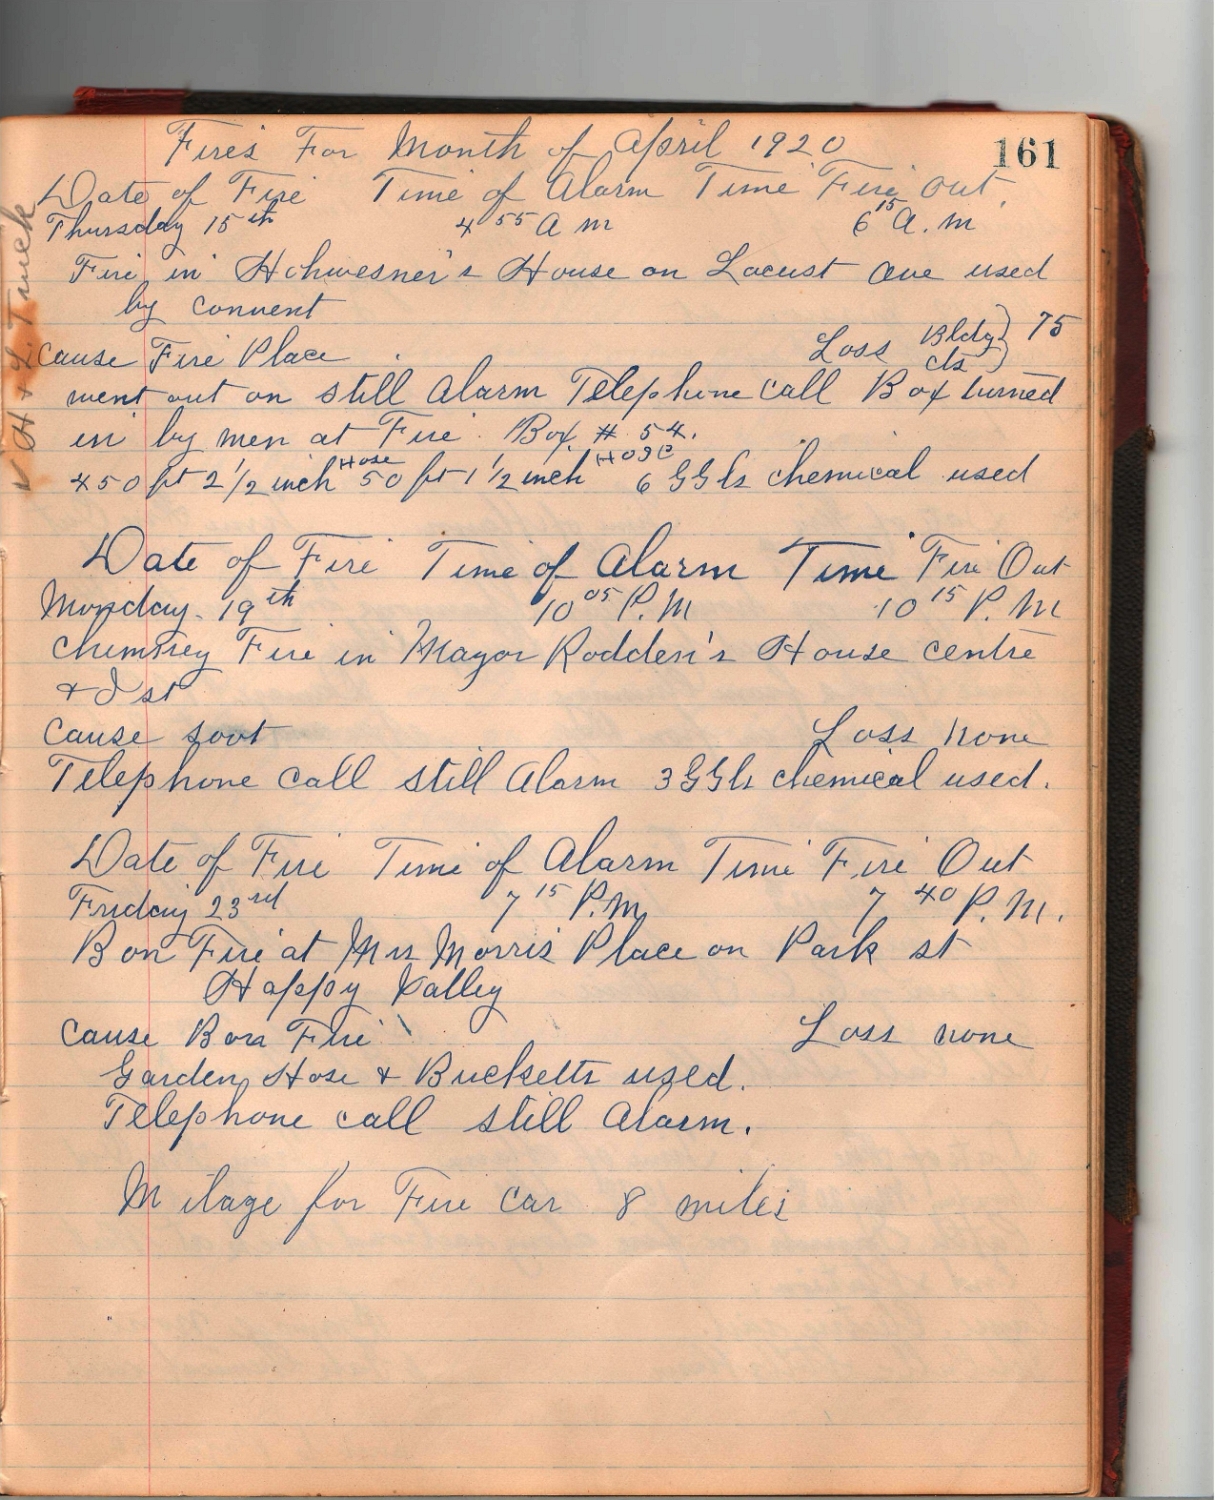 161
Fires For Month of April 1920
Date of Fire Time of Alarm Time Fire Out
Thursday 15th 4 55 A m 6 15 A. m
Fire in House on Locust ave used
by convent
Cause Fire Place Loss Bldg } 75
cts
went out on still Alarm Telephone call Box turned
in by men at Fire. Box # 54.
Hose Hose
450 ft 2 1/2 inch 50 ft 1 1/2 inch 6 GGls chemical used
Date of Fire Time of Alarm Time Fire Out
Monday. 19th 10 05 P. M 10 15 P. M
Chemney Fire in Mayor Rodden's House centre
& I st
Cause soot Loss none
Telephone call still Alarm 3 GGls chemical used.
Date of Fire Time of Alarm Time Fire Out
Friday 23rd 7 15 P.M. 7 40 P. M.
Bon Fire at Mrs Morris Place on Park st
Happy Valley
Cause Bon Fire Loss none
Garden Hose & Bucketts used.
Telephone call still Alarm.
Milage for Fire Car 8 miles
✓ H & L Truck